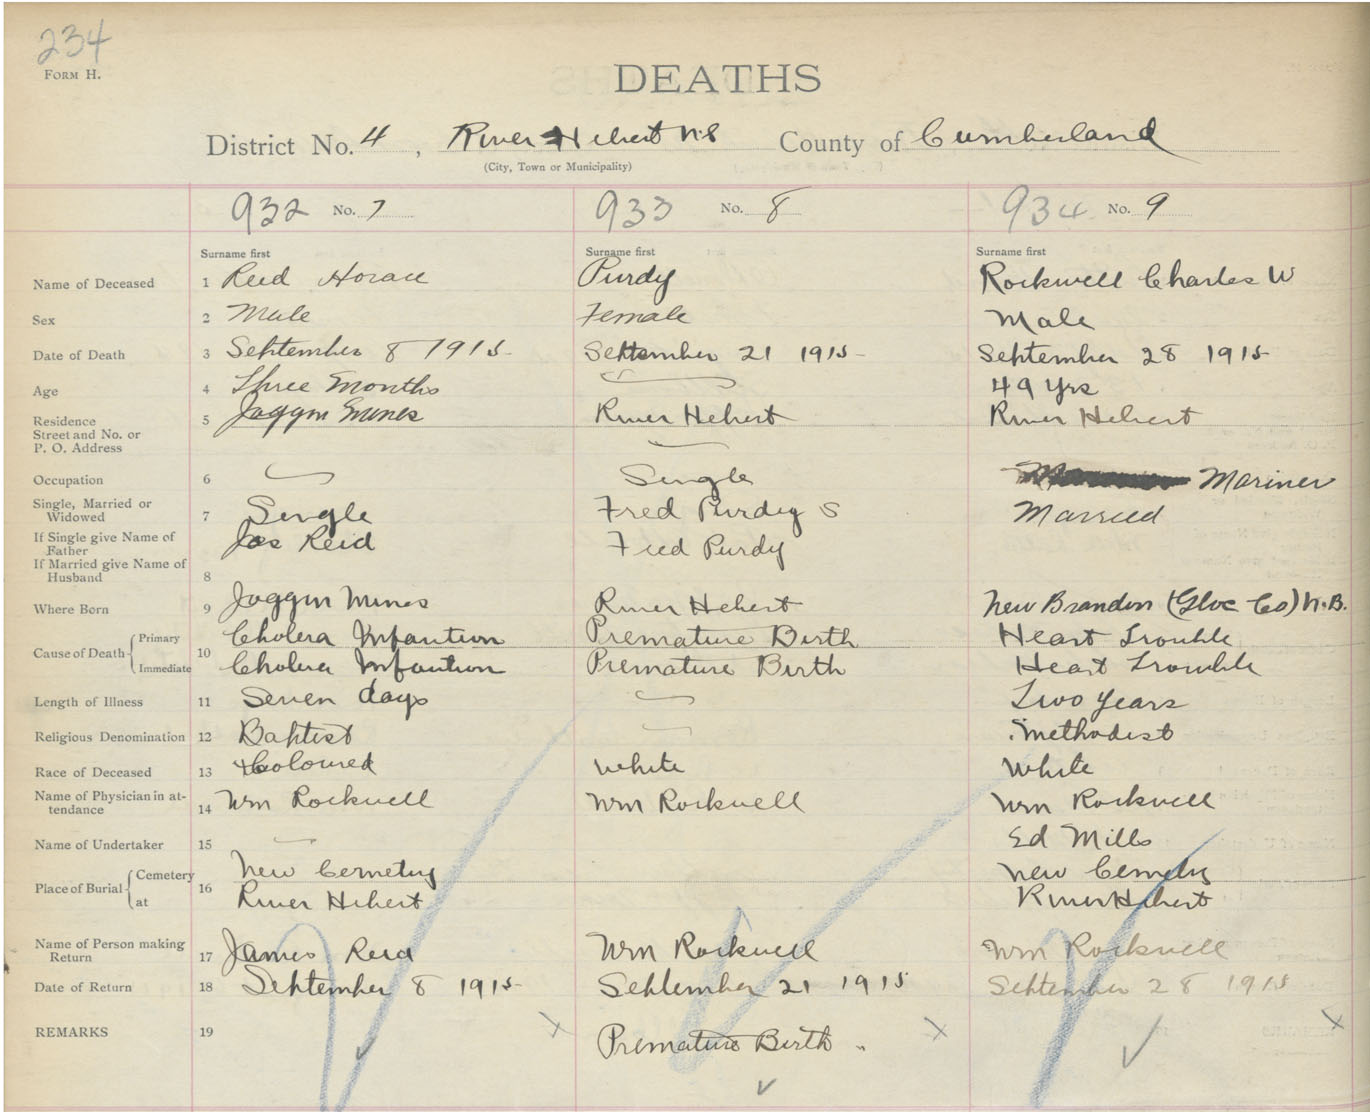 234
FORM H.
DEATHS
District No. 4, River Hebert N.S County of Cumberland
(City, Town or Municipality)
932 No. 7 933 No. 8 934 No. 9
Surname first Surname first Surname first
Name of Deceased 1 Reid Horace Purdy Rockwell Charles W
Sex 2 Male Female Male
Date of Death 3 September 8 1915 September 21 1915 September 28 1915
Age 4 Three Months 49 Yrs
Residence 5 Joggin Mines River Hebert River Hebert
Street and No. or
P. O. Address
Occupation 6 Single Mariner
Single, Married or
Widowed 7 Single Fred Purdy S Married
If Single give Name of
Father Jos Reid Fred Purdy
If Married give Name of
Husband 8
Where Born 9 Joggin Mines River Hebert New Brandon (Gloc Co) N.B.
Cause of Death Primary 10 Cholera Infantum Premature Birth Heart Trouble
Immediate Cholera Infantum Premature Birth Heart Trouble
Length of Illness 11 Seven days Two Years
Religious Denomination 12 Baptist Methodist
Race of Deceased 13 Coloured White White
Name of Physician in at-
tendance 14 Wm Rockwell Wm Rockwell Wm Rockwell
Name of Undertaker 15 Ed Mills
Place of Burial Cemetery 16 New Cemetry New Cemetry
at River Hebert River Hebert
Name of Person making
Return 17 James Reid Wm Rockwell Wm Rockwell
Date of Return 18 September 8 1915 September 21 1915 September 28 1915
REMARKS 19 Premature Birth